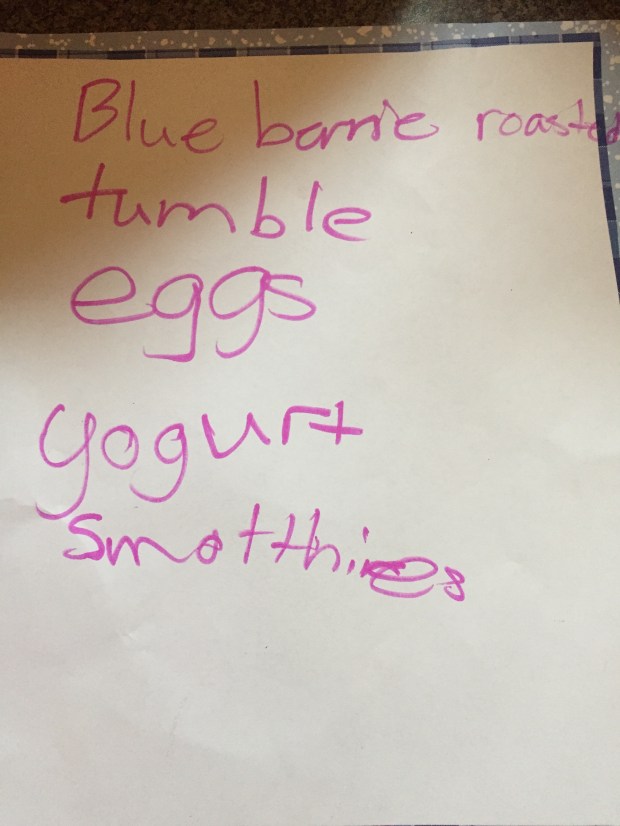 Blue barrie roasted
tumble
eggs
yogurt
smotthies